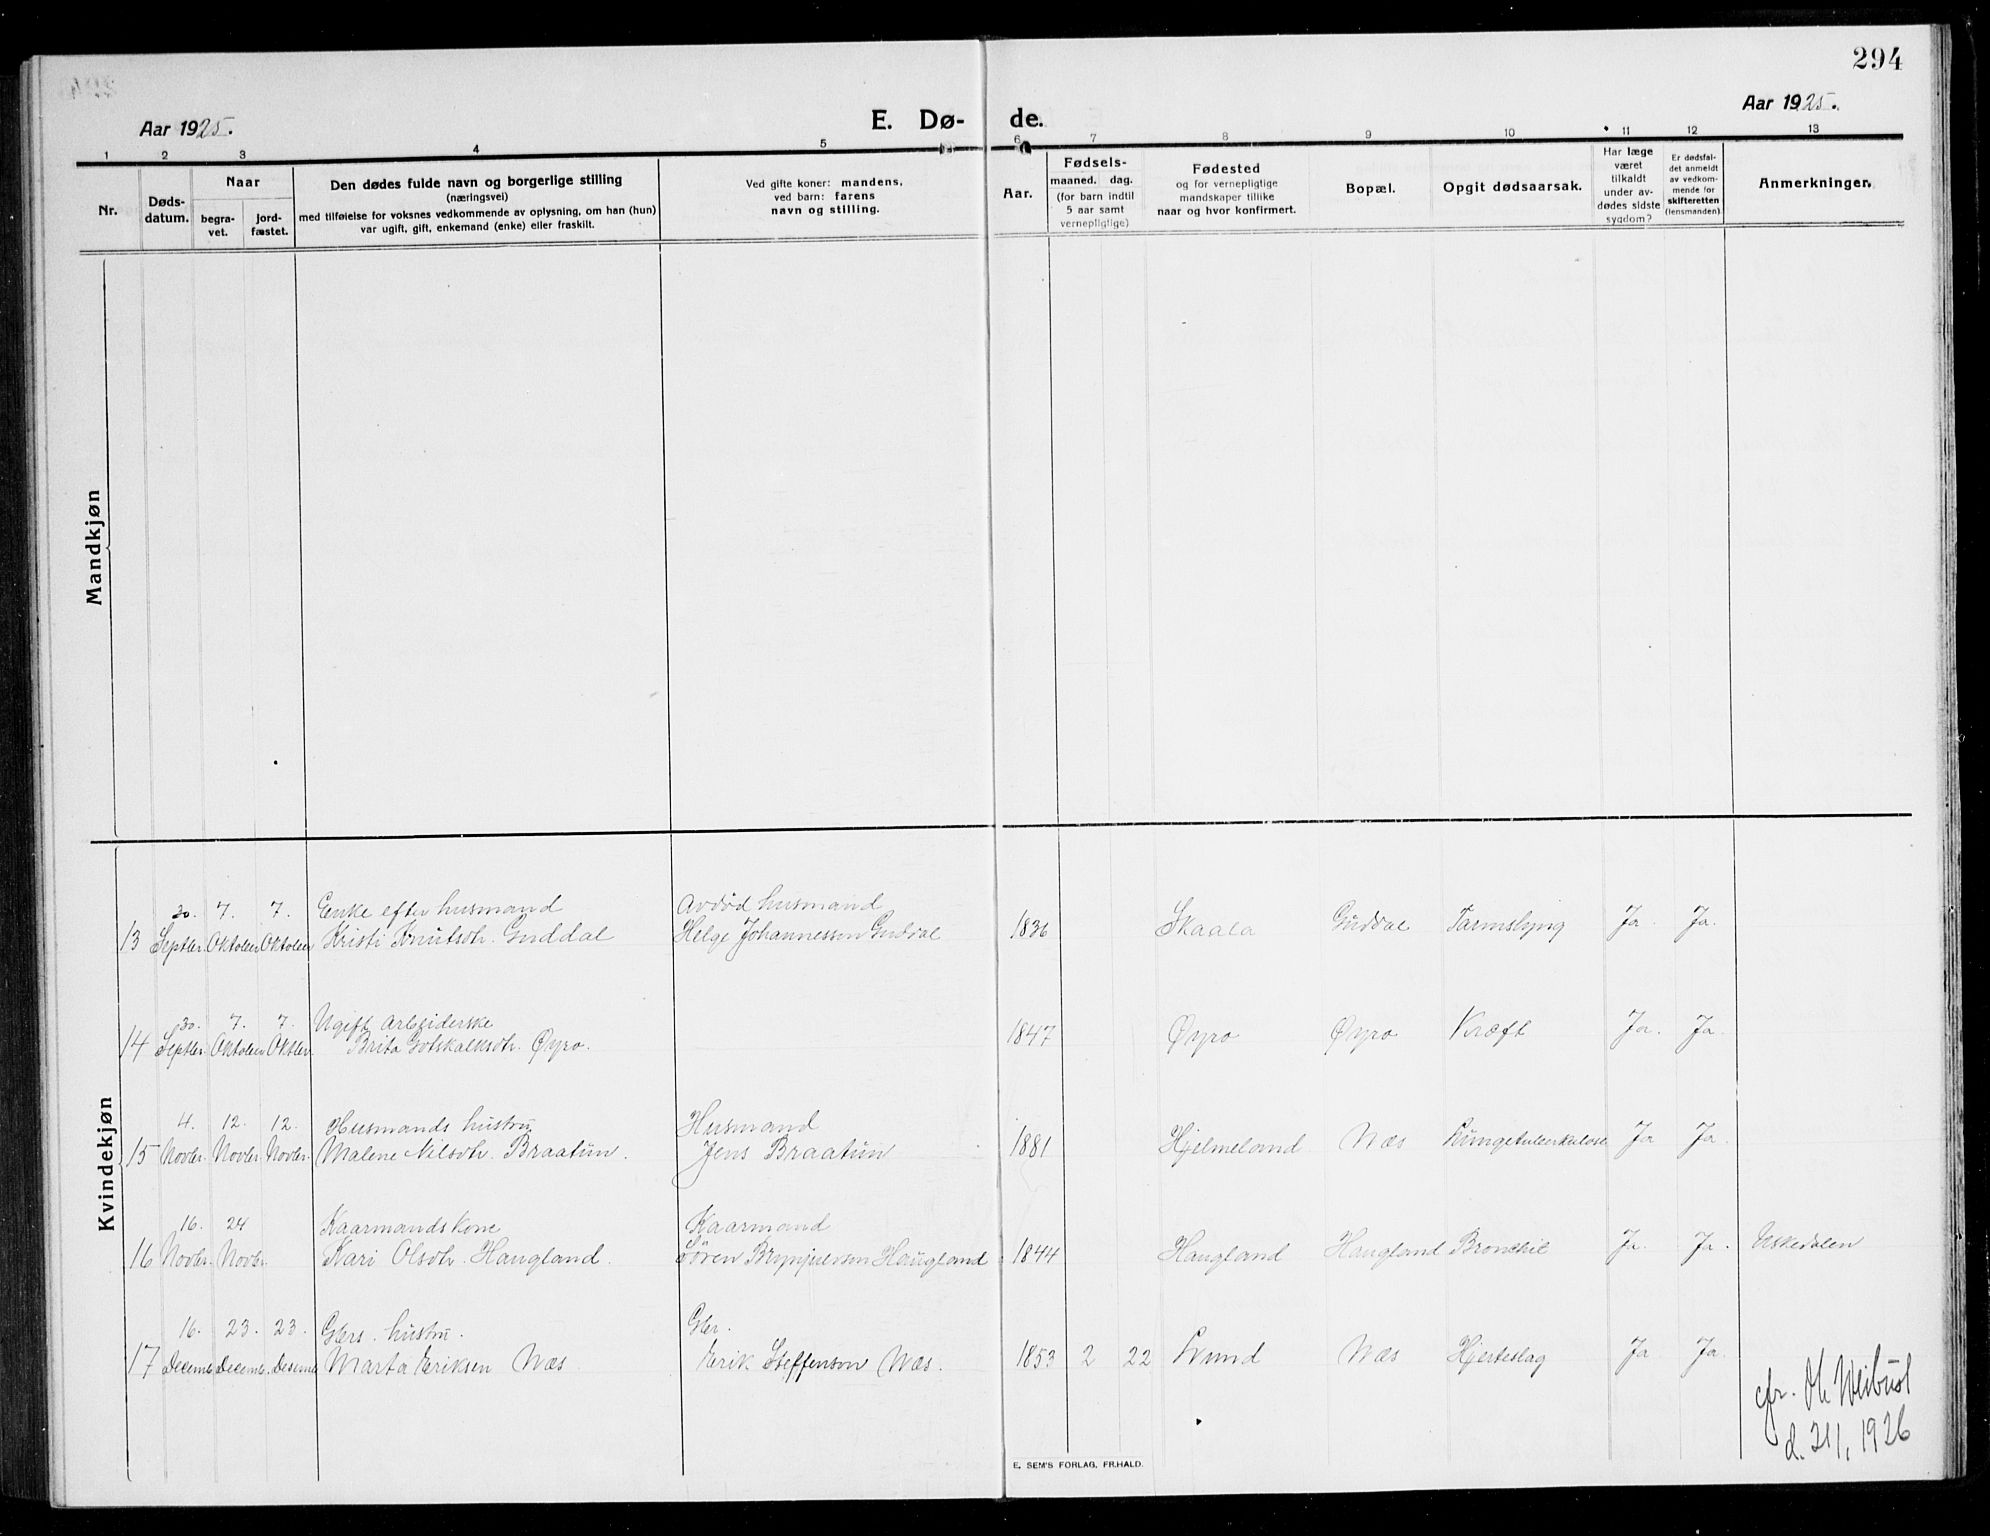 294
Aar 1925.
E. Dø-
de.
Aar 1925.
1 2 3 4 5 6 7 8 9 10 11 12 13
Nr.
Døds-
datum.
Naar
begra-
vet.
jord-
fæstet.
Den dødes fulde navn og borgerlige stilling
(næringsvei)
med tilføielse for voksnes vedkommende av oplysning, om han (hun)
var ugift, gift, enkemand (enke) eller fraskilt.
Ved gifte koner: mandens,
ved barn: farens
navn og stilling.
Aar.
Fødsels-
maaned. dag.
(for barn indtil
5 aar samt
vernepligtige)
Fødested
og for vernepligtige
mandskaper tillike
naar og hvor konfirmert.
Bopæl.
Opgit dødsaarsak.
Har læge
været
tilkaldt
under av-
dødes sidste
sygdom?
Er dødsfal-
det anmeldt
av vedkom-
mende for
skifteretten
(lensmanden).
Anmerkninger.
Mandkjøn
Kvindekjøn
30. 7. 7. Enke efter husmand Avdød husmand
13 Septbr. Oktober Oktober Kristi Knutsdtr. Guddal Helge Johannesson Guddal 1836 Skaala Guddal Tarmslyng Ja. Ja.
30. 7. 7. Ugift arbeiderske
14 Septbr. Oktober Oktbr. Brita Gotskalksdtr. Øyro. 1847 Øyro Øyro Kræft Ja. Ja.
4. 12. 12. Husmands hustru Husmand
15 Novbr. Novbr. Novbr. Malene Nilsdtr. Braatun. Jens Braatun 1881 Hjelmeland Næs Lungetuberkulose Ja Ja.
16. 24 Kaarmands kone Kaarmand
16 Novbr. Novbr. Kari Olsdtr. Haugland. Søren Brynjulvson Haugland 1844 Haugland Haugland Bronchit Ja. Ja. Uskedalen
16. 23. 23. Gbrs. hustru. Gbr.
17 Decemb. Decemb. Desemb. Marta Eriksen Næs. Erik Steffenson Næs. 1853 2 22 Lund Næs Hjerteslag Ja Ja.
cfr. Ol. Weibust
d. 21/1, 1926
E. SEM'S FORLAG, FR.HALD.